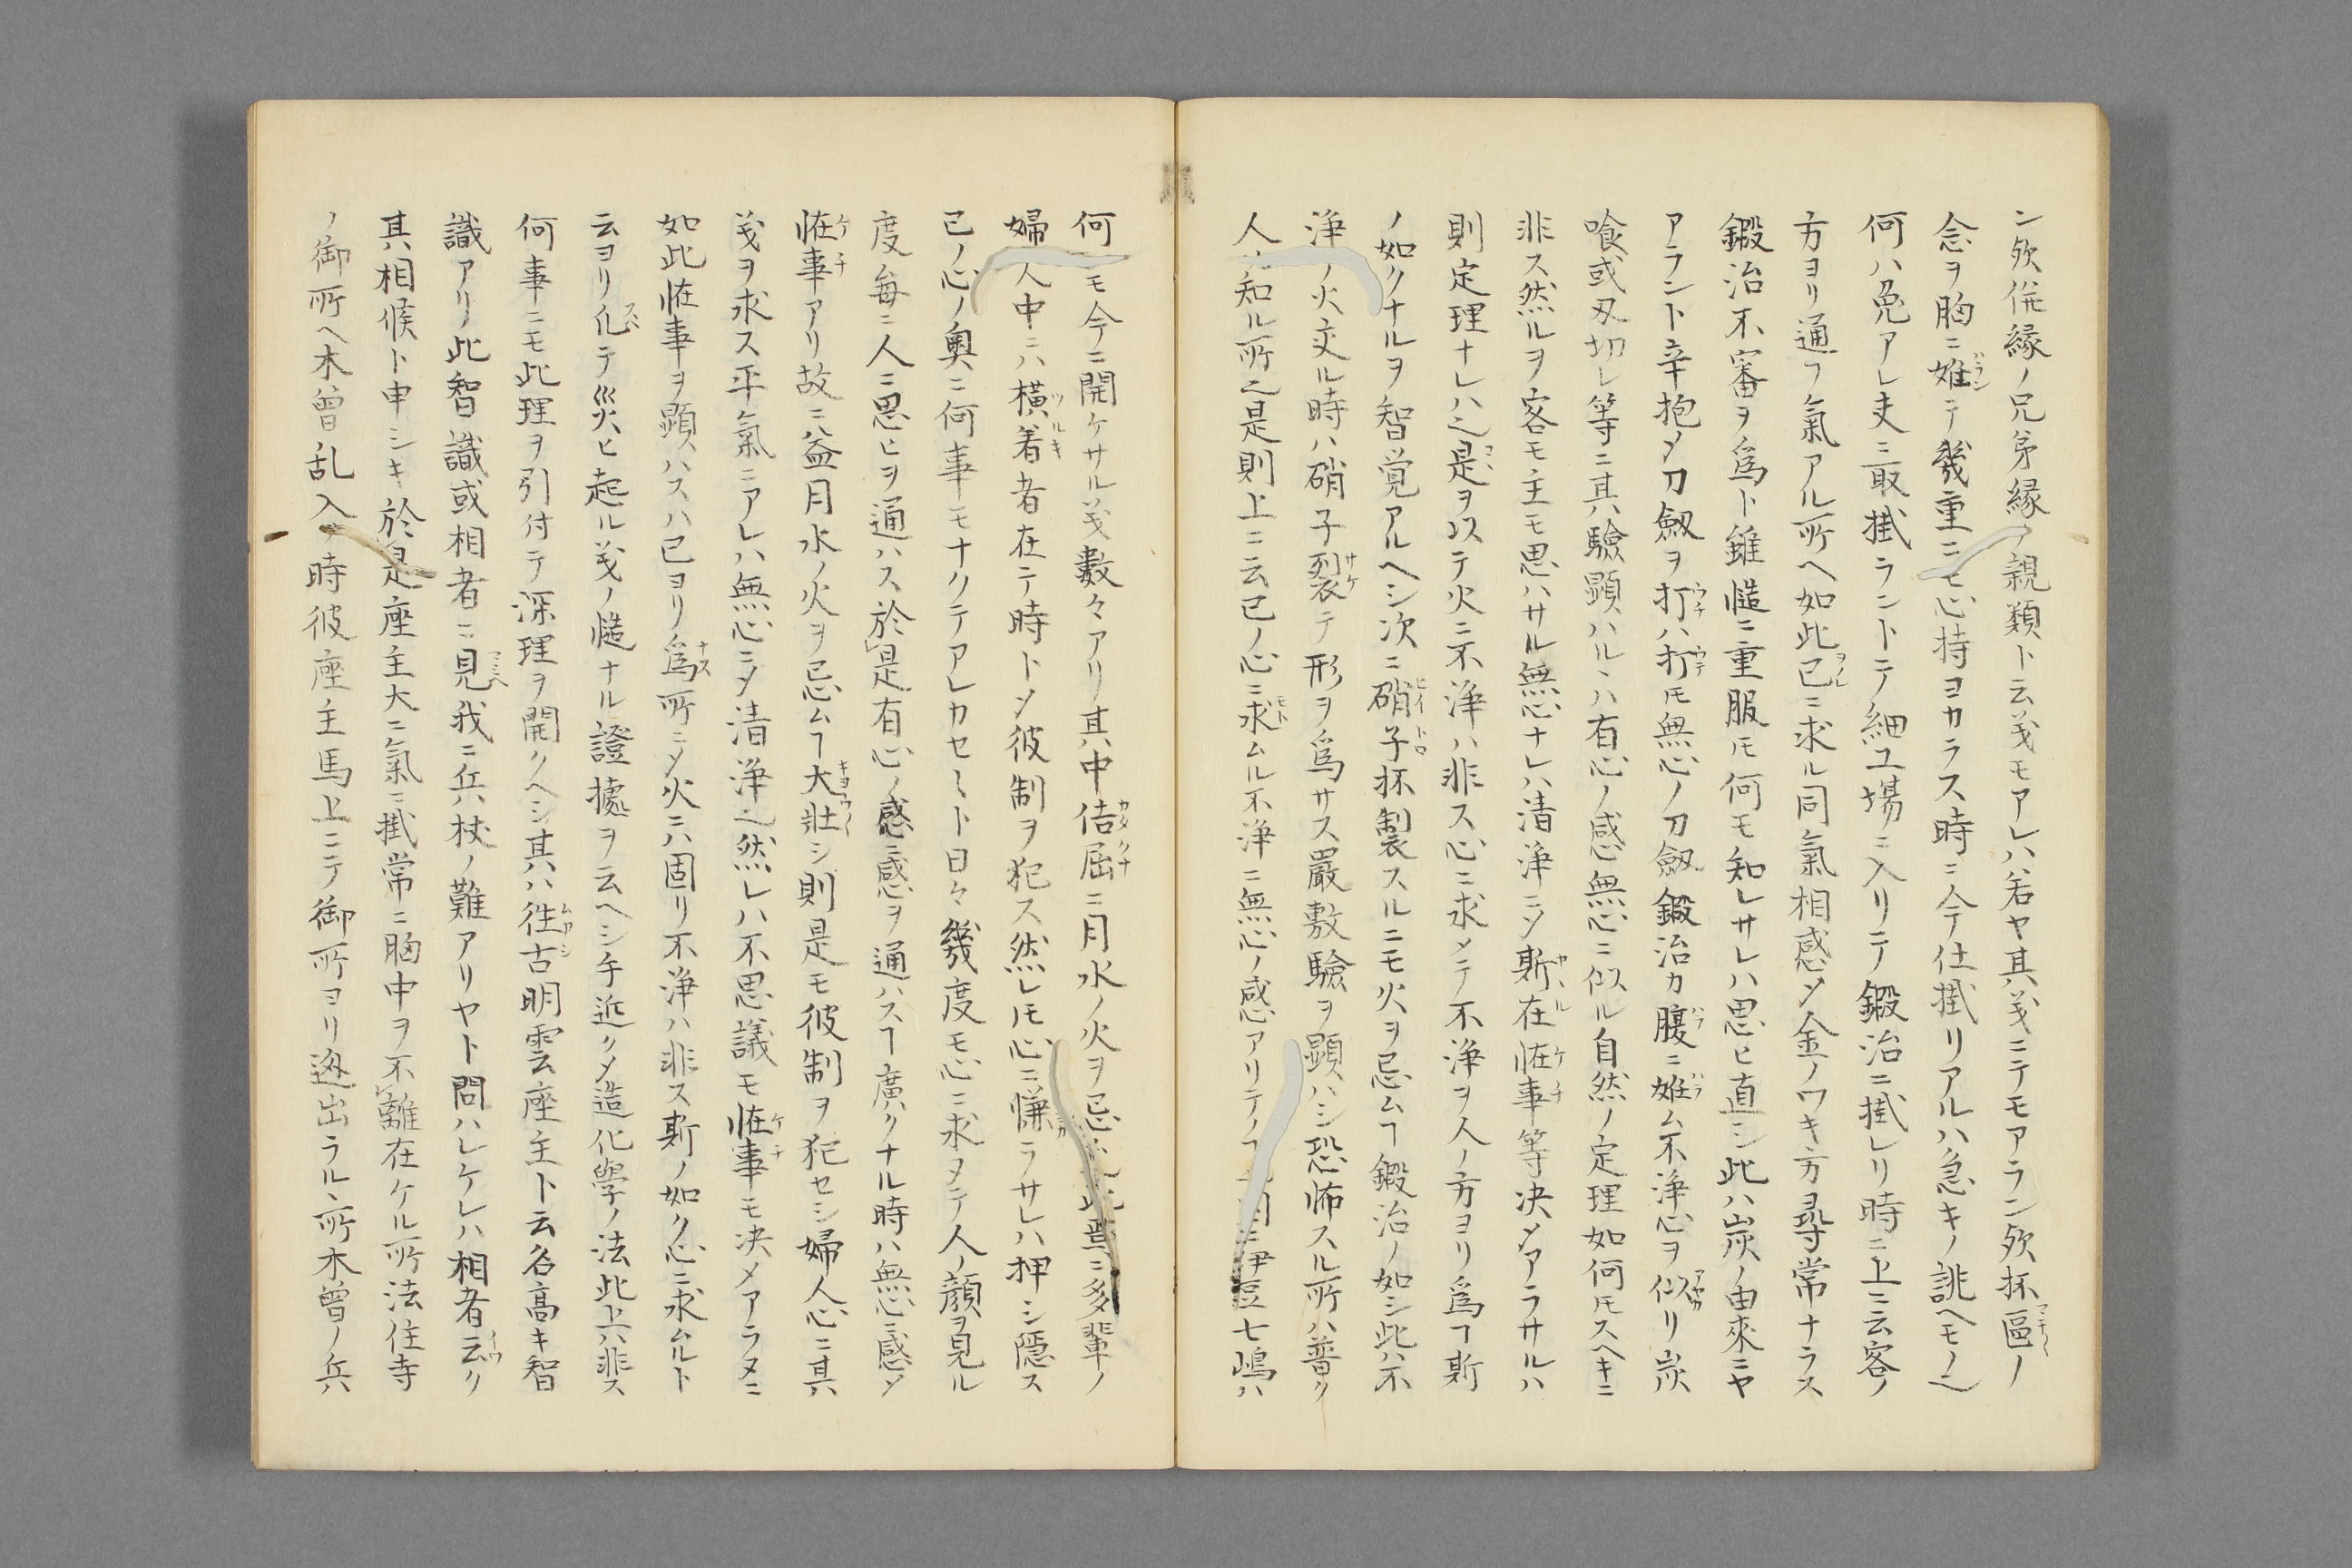 ン欤併縁ノ兄弟縁ノ親類ト云義モアレハ若ヤ其義ニテモアラン欤抔區ノ
念ヲ胸ニ姙テ幾重ニモ心持ヨカラス時ニ今テ仕掛リアルハ急キノ誂ヘモノ也
何ハ兔アレ夫ニ取掛ラントテ細工場ニ入リテ鍛冶ニ掛レリ時ニ上ニ云客ノ
方ヨリ通フ氣アル所ヘ如此己ニ求ル同氣相感メ金ノワキ方尋常ナラス
鍛冶不審ヲ爲ト雖慥ニ重服モ何モ知レサレハ思ヒ直シ此ハ炭ノ由來ニヤ
アラント辛抱メ刀劔ヲ打ハ打モ無心ノ刀劔鍛冶カ腹ニ姙ム不浄心ヲ似リ炭
喰或刄切レ等ニ其驗顕ハルヽハ有心ノ感無心ニ似ル自然ノ定理如何モスヘキニ
非ス然ルヲ客モ主モ思ハサル無心ナレハ清浄ニメ斯在恠事等决メアラサルハ
則定理ナレハ也是ヲ以テ火ニ不浄ハ非ス心ニ求メテ不浄ヲ人ノ方ヨリ爲ヿ斯
ノ如クナルヲ智覚アルヘシ次ニ硝子抔製スルニモ火ヲ忌ムヿ鍛冶ノ如シ此ハ不
浄ノ火交ル時ハ硝子裂テ形ヲ爲サス嚴敷驗ヲ顕ハシ恐怖スル所ハ普ク
人知ル所也是則上ニ云己ノ心ニ求ムル不浄ニ無心ノ感アリテノヿ伊豆七嶋ハ
何モ今ニ開ケサル義數々アリ其中佶屈ニ月水ノ火ヲ忌此ニ多輩ノ
婦人中ニハ横着者在テ時トメ彼制ヲ犯ス然レモ心ニ慊ラサレハ押シ隠ス
己ノ心ノ奥ニ何事モナクテアレカセヽト日々幾度モ心ニ求ヌテ人ノ顔ヲ見ル
度毎ニ人ニ思ヒヲ通ハス於是有心ノ感ニ感ヲ通ハスヿ廣クナル時ハ無心ニ感メ
恠事アリ故ニ益月水ノ火ヲ忌ムヿ大壯シ則是モ彼制ヲ犯セシ婦人心ニ其
義ヲ求ス平氣ニアレハ無心ニメ清浄也然レハ不思議モ恠事モ决メアラヌニ
如此恠事ヲ顕ハスハ己ヨリ爲所ニメ火ニハ固リ不浄ハ非ス斯ノ如ク心ニ求ムルト
云ヨリ化テ災ヒ起ル義ノ慥ナル證據ヲ云ヘシ手近クメ造化學ノ法此上ハ非ス
何事ニモ此理ヲ引付テ深理ヲ開クヘシ其ハ徃古明雲座主ト云名高キ智
識アリ此智識或相者ニ見我ニ兵杖ノ難アリヤト問ハレケレハ相者云ク
其相候ト申シキ於是座主大ニ氣ニ掛常ニ胸中ヲ不離在ケル所法住寺
ノ御所ヘ木曽乱入ノ時彼座主馬上ニテ御所ヨリ迯出ラルヽ所木曽ノ兵